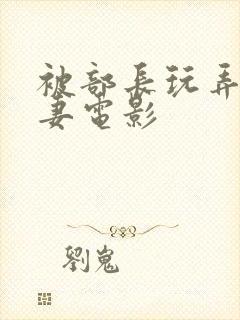 被部長玩弄
妻電影
劉嵬